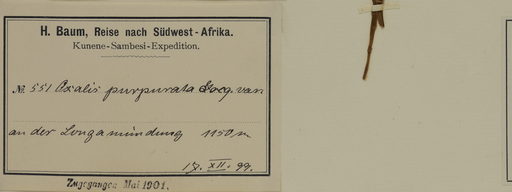 H. Baum, Reise nach Südwest-Afrika.
Kunene-Sambesi-Expedition.
№ 551 Oxalis purpurata Jacq. var
an der Longamündung 1150 m
17. XII. 99.
Zugegangen Mai 1901.